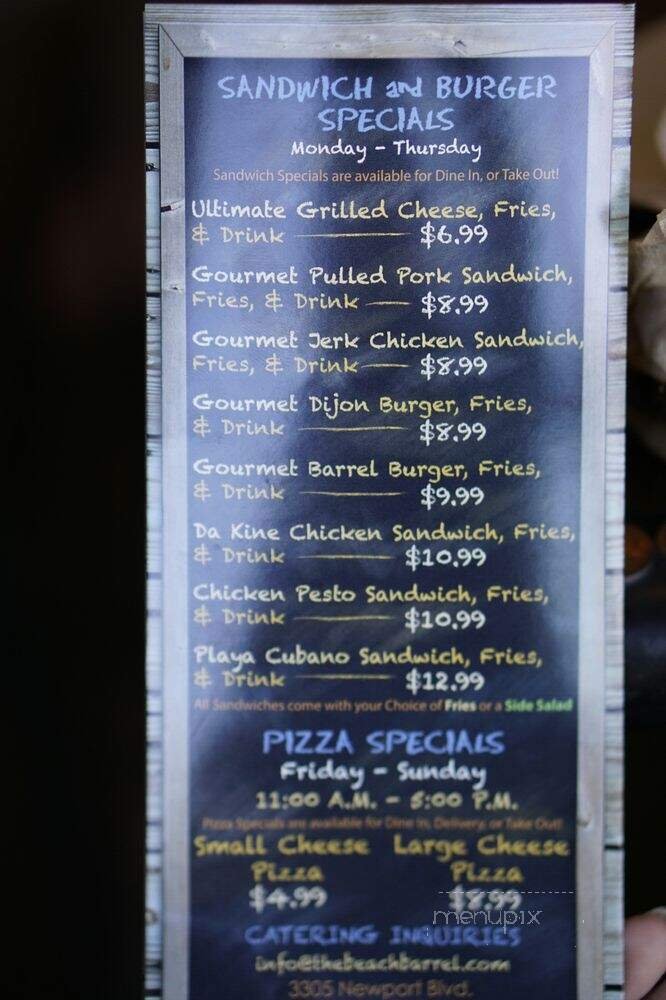 SANDWICH and BURGER
SPECIALS
Monday - Thursday
Sandwich Specials are available for Dine In, or Take Out!
Ultimate Grilled Cheese, Fries,
& Drink $6.99
Gourmet Pulled Pork Sandwich,
Fries, & Drink $8.99
Gourmet Jerk Chicken Sandwich,
Fries, & Drink $8.99
Gourmet Dijon Burger, Fries,
& Drink $8.99
Gourmet Barrel Burger, Fries,
& Drink $9.99
Da Kine Chicken Sandwich, Fries,
& Drink $10.99
Chicken Pesto Sandwich, Fries,
& Drink $10.99
Playa Cubano Sandwich, Fries,
& Drink $12.99
All Sandwiches come with your Choice of Fries or a Side Salad
PIZZA SPECIALS
Friday - Sunday
11:00 A.M. - 5:00 P.M.
Pizza Specials are available for Dine In, Delivery, or Take Out!
Small Cheese Large Cheese
Pizza Pizza
$4.99 $8.99
menupix
CATERING INQUIRIES
info@thebeachbarrel.com
3305 Newport Blvd.